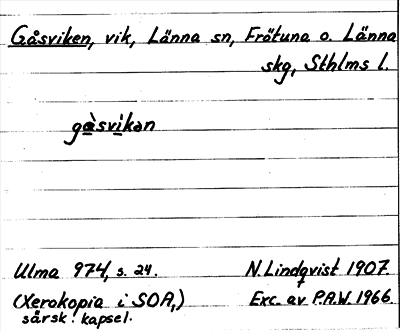 Gåsviken, vik, Länna sn, Frötuna o. Länna
skg, Sthlms l.
gàsvikən
Ulma 974, s. 24. N. Lindqvist 1907.
(Xerokopia i SOA,) Exc. av P.A.W. 1966.
särsk. kapsel.